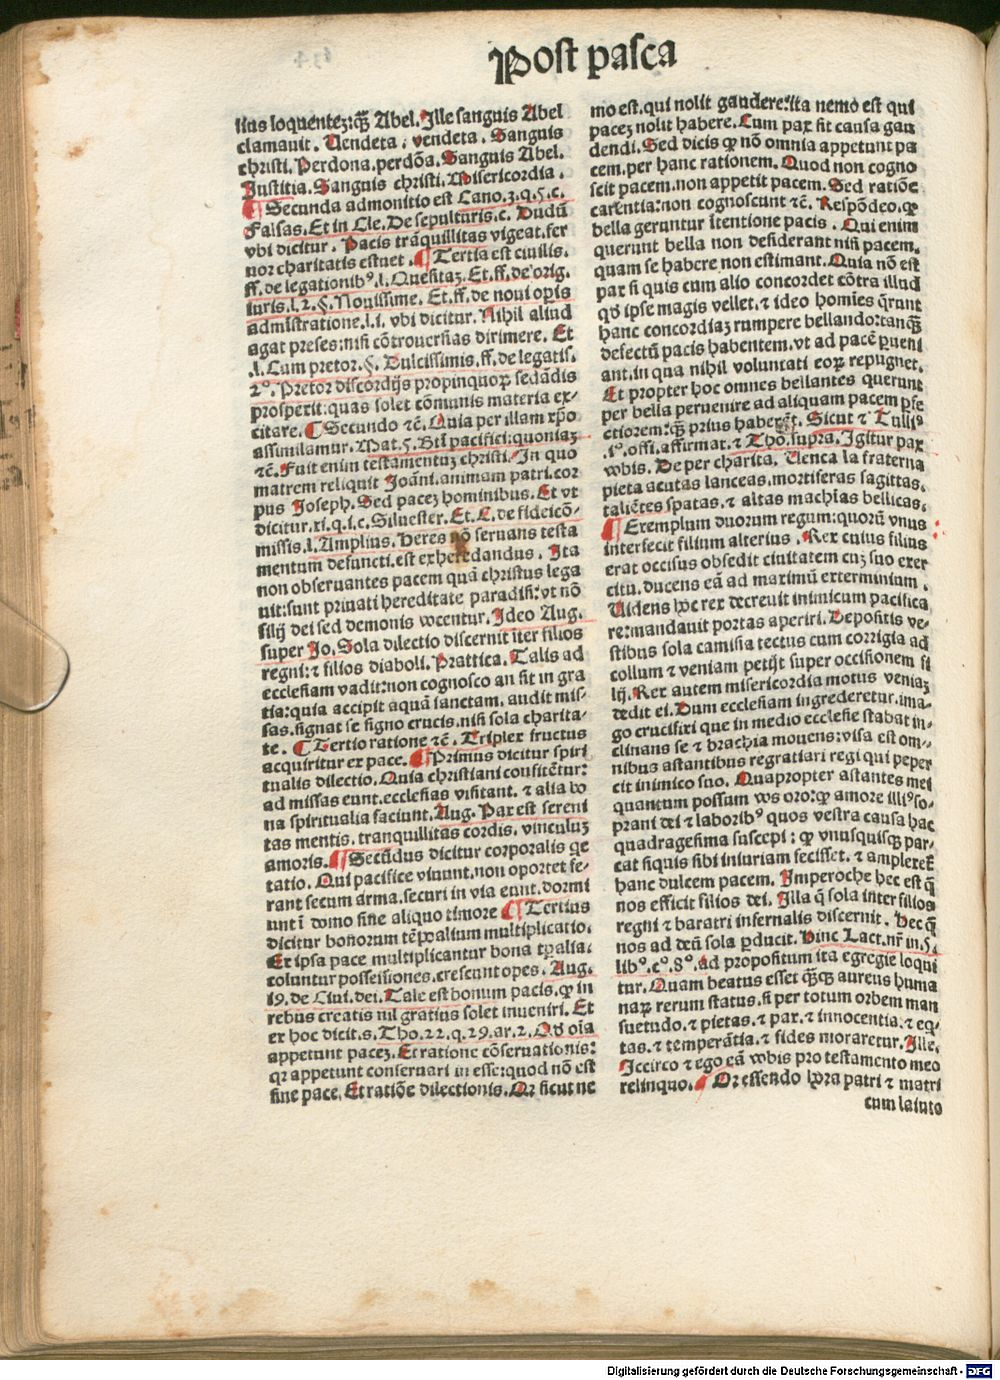 Post pasca
lius loquenteʒ: qȝ Abel. Ille sanguis Abel
clamauit. Uendeta, vendeta. Sanguis
christi. Perdona, perdōa. Sanguis Abel.
Iustitia. Sanguis christi. Misericordia.
¶ Secunda admonitio est Cano. 3. q. 5. c.
Falsas. Et in Cle. De sepulturis. c. Dudū
vbi dicitur. Pacis trāquillitas vigeat. fer
uor charitatis estuet. ¶ Tertia est ciuilis.
ff. de legationibꝰ. l. Quesitaʒ. Et. ff. de orig.
iuris. l. 2. §. Nouissime. Et. ff. de noui opīs
admīstratione. l. i. vbi dicitur. Nihil aliud
agat preses: nisi cōtrouersias dirimere. Et
.l. Cum pretor. §. Dulcissimis. ff. de legatis.
2°. Pretor discordijs propinquoꝝ sedādis
prospexit: quas solet cōmunis materia ex-
citare. ¶ Secundo ⁊c̄. Quia per illam xp̄o
assimilamur. Mat. 5. Btī pacifici: quoniaʒ
⁊c̄. Fuit enim testamentuʒ christi. In quo
matrem reliquit Joāni. animam patri. cor
pus Joseph. Sed paceʒ hominibus. Et vt
dicitur. xi. q. i. c. Siluester. Et. C. de fideicō-
missis. l. Amplius. Heres nō seruans testa
mentum defuncti. est exheredandus. Ita
non obseruantes pacem quā christus lega
uit: sunt priuati hereditate paradisi: vt nō
filij dei sed demonis vocentur. Ideo Aug.
super Jo. Sola dilectio discernit īter filios
regni: ⁊ filios diaboli. Prattica. Talis ad
ecclesiam vadit: non cognosco an sit in gra
tia: quia accipit aquā sanctam. audit mis-
sas. signat se signo crucis. nisi sola charita-
te. ¶ Tertio ratione ⁊c̄. Triplex fructus
acquiritur ex pace. ¶ Primus dicitur spiri
tualis dilectio. Quia christiani confitētur:
ad missas eunt. ecclesias visitant. ⁊ alia bo
na spiritualia faciunt. Aug. Pax est sereni
tas mentis. tranquillitas cordis. vinculuʒ
amoris. ¶ Secūdus dicitur corporalis qe
tatio. Qui pacifice viuunt. non oportet fe-
rant secum arma. securi in via eunt. dormi
unt ī domo sine aliquo timore ¶ Tertius
dicitur bonorum tēp̄alium multiplicatio.
Ex ipsa pace multiplicantur bona tp̄alia.
coluntur possessiones. crescunt opes. Aug.
19. de Ciui. dei. Tale est bonum pacis. ꝙ in
rebus creatis nil gratius solet inueniri. Et
ex hoc dicit. s. Tho. 22. q. 29. ar. 2. Qd̄ oīa
appetunt paceʒ. Et ratione cōseruationis:
qr appetunt conseruari in esse: quod nō est
sine pace. Et ratiōe dilectionis. Qr sicut ne
mo est. qui nolit gaudere: ita nemo est qui
paceʒ nolit habere. Cum pax sit causa gau
dendi. Sed dicis ꝙ nō omnia appetunt pa
cem. per hanc rationem. Quod non cogno
scit pacem. non appetit pacem. Sed ratiōe
carentia: non cognoscunt ⁊c̄. Respōdeo. ꝙ
bella geruntur ītentione pacis. Qui enim
querunt bella non desiderant nisi pacem.
quam se habere non estimant. Quia nō est
pax si quis cum alio concordet cōtra illud
qd̄ ipse magis vellet. ⁊ ideo homīes qr̄unt
hanc concordiaʒ rumpere bellando: tanqȝ
defectū pacis habentem. vt ad pacē ꝑueni
ant. in qua nihil voluntati eoꝝ repugnet.
Et propter hoc omnes bellantes querunt
per bella peruenire ad aliquam pacem ꝑfe
ctiorem: qȝ prius haberēt. Sicut ⁊ Tulliꝰ
.i°. offi. affirmat. ⁊ Tho. supra. Igitur pax
vobis. De per charita. Uenca la fraterna
pieta acutas lanceas. mortiferas sagittas.
taliētes spatas. ⁊ altas machīas bellicas.
¶ Exemplum duorum regum: quorū vnus
interfecit filium alterius. Rex cuius filius
erat occisus obsedit ciuitatem cuʒ suo exer
citu. ducens eā ad maximū exterminium.
Uidens hoc rex decreuit inimicum pacifica
re: mandauit portas aperiri. Depositis ve-
stibus sola camisia tectus cum corrigia ad
collum ⁊ veniam petijt super occisionem fi
lij. Rex autem misericordia motus veniaʒ
dedit ei. Dum ecclesiam ingrederetur. ima-
go crucifixi que in medio ecclesie stabat in-
clinans se ⁊ brachia mouens: visa est om-
nibus astantibus regratiari regi qui peper
cit inimico suo. Quapropter astantes mei
quantum possum vos oro: ꝙ amore illiꝰ so-
prani dei ⁊ laboribꝰ quos vestra causa hac
quadragesima suscepi: ꝙ vnusquisqȝ par-
cat siquis sibi iniuriam fecisset. ⁊ amplexet̄
hanc dulcem pacem. Imperoche hec est q̄
nos efficit filios dei. Illa q̄ sola inter filios
regni ⁊ baratri infernalis discernit. Hec q̄
nos ad deū sola ꝑducit. Hinc Lact. nr̄ in. 5.
libꝰ. c°. 8°. ad propositum ita egregie loqui
tur. Quam beatus esset qȝqȝ aureus huma
naꝝ rerum status. si per totum orbem man
suetudo. ⁊ pietas. ⁊ pax. ⁊ innocentia. ⁊ eq-
tas. ⁊ temperātia. ⁊ fides moraretur. Ille.
Iccirco ⁊ ego eā vobis pro testamento meo
relinquo. ¶ Or essendo hora patri ⁊ matri
cum laiuto
Digitalisierung gefördert durch die Deutsche Forschungsgemeinschaft - DFG